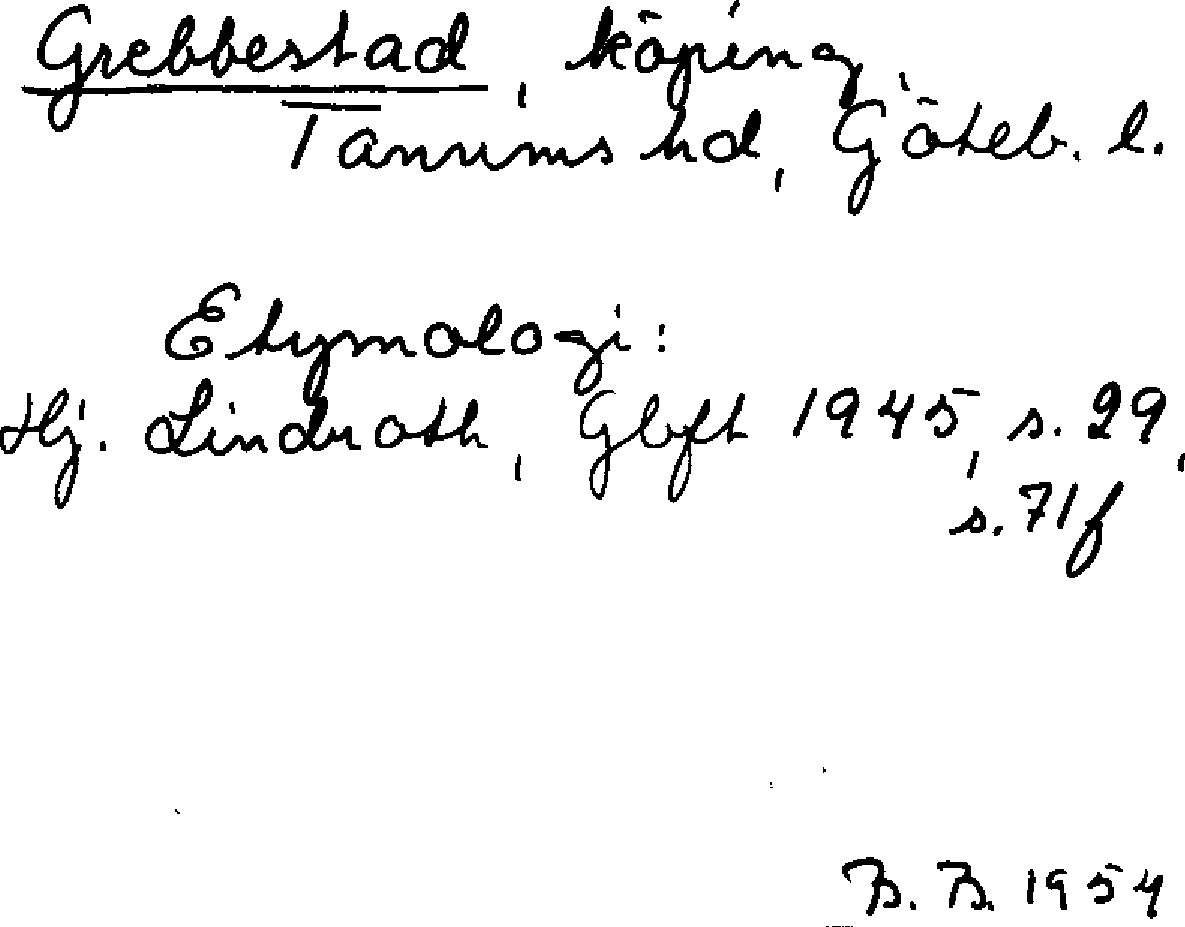 Grebbestad, köping,
Tanums hd, Göteb. l.
Etymologi:
Hj. Lindroth, Gbft 1945, s. 29,
s. 71f
B. B. 1954